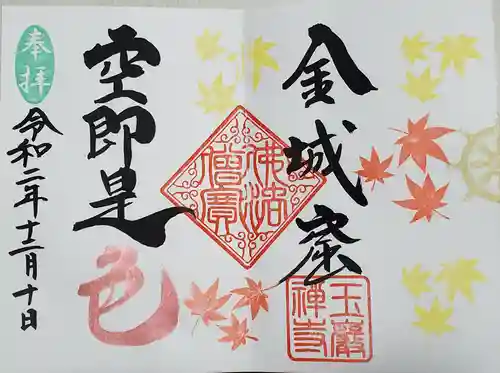 金城窟
玉巖禅寺
佛法僧寶
空即是
色
奉拝
令和二年十二月十日